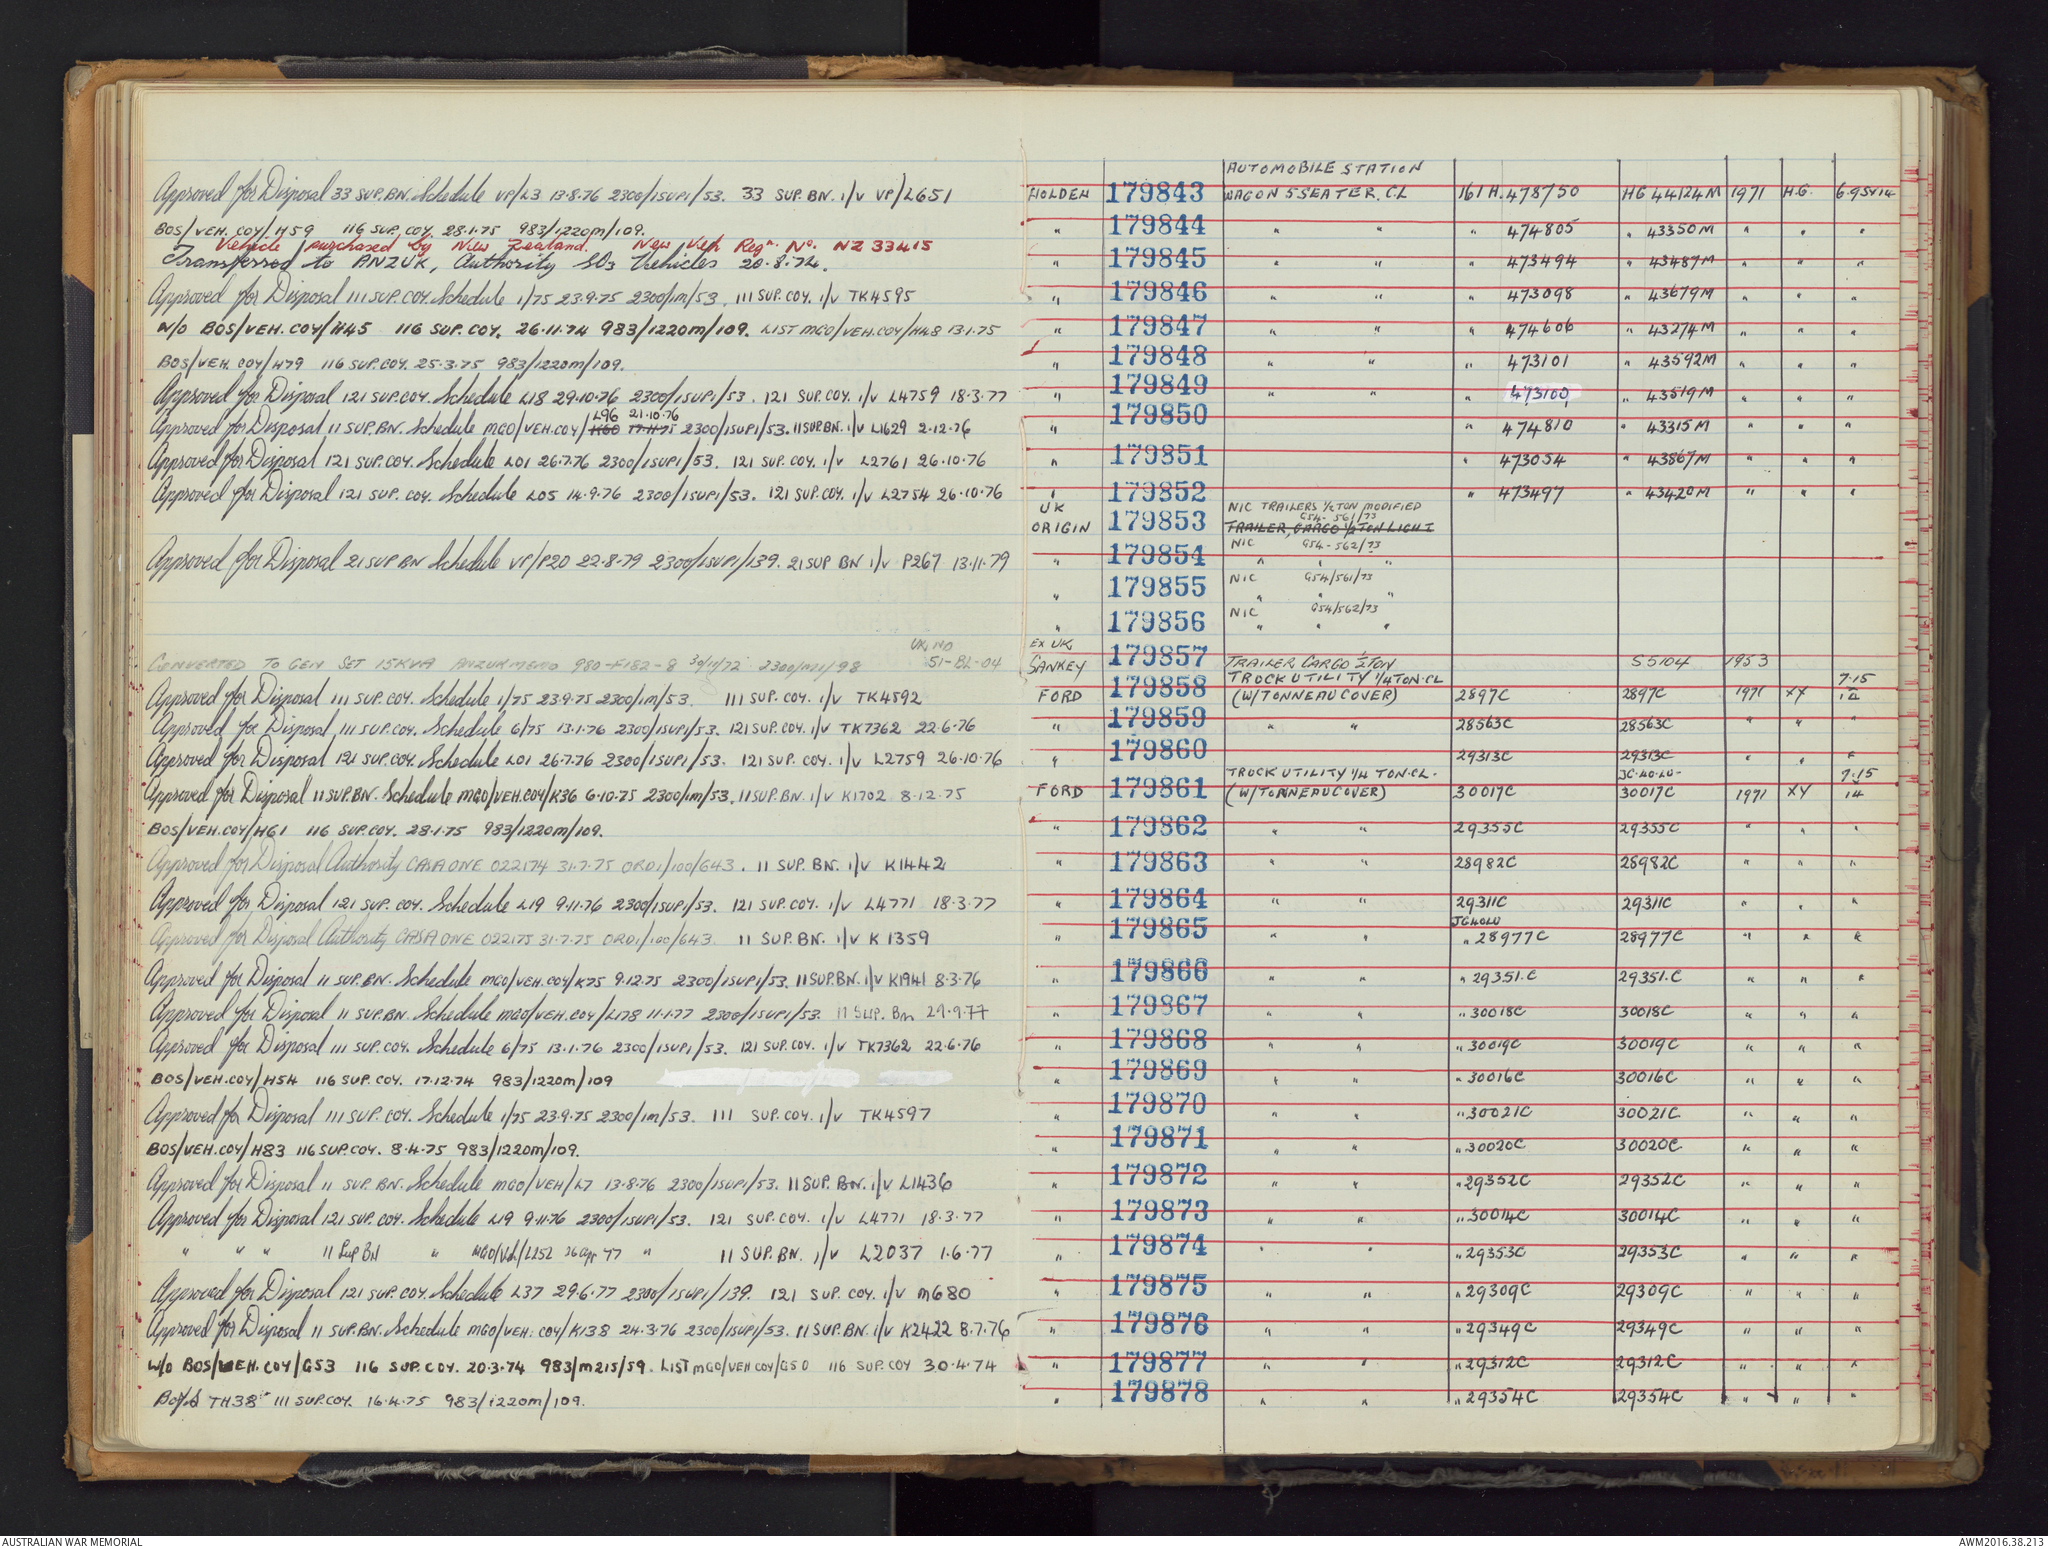 AUTOMOBILE STATION
Approved for Disposal 33 SUP. BN. Schedule VP/L3 13.8.76 2300/1SUP1/53. 33 SUP. BN. I/V VP/L651 HOLDEN 179843 WAGON 5 SEATER. CL 161 H. 478750 HG 44124M 1971 H.G. 6.95x14
BOS/VEH. COY/H59 116 SUP. COY. 28.1.75 983/1220m/109. " 179844 " " " 474805 " 43350M " " "
Vehicle purchased by New Zealand. New Veh Regn. No. NZ 33415
Transferred to ANZUK, Authority SO3 Vehicles 20.8.74. " 179845 " " " 473494 " 43487M " " "
Approved for Disposal 111 SUP. COY. Schedule 1/75 23.9.75 2300/1m/53. 111 SUP. COY. I/V TK4595 " 179846 " " " 473098 " 43679M " " "
W/O BOS/VEH. COY/H45 116 SUP. COY. 26.11.74 983/1220m/109. LIST MGO/VEH.COY/H48 13.1.75 " 179847 " " " 474606 " 43274M " " "
BOS/VEH. COY/H79 116 SUP. COY. 25.3.75 983/1220m/109. " 179848 " " " 473101 " 43592M " " "
Approved for Disposal 121 SUP. COY. Schedule L18 29.10.76 2300/1SUP1/53. 121 SUP. COY. I/V L4759 18.3.77 " 179849 " " " 473100 " 43519M " " "
L96 21.10.76
Approved for Disposal 11 SUP. BN. Schedule MGO/VEH.COY/K60 17.11.75 2300/1SUP1/53. 11 SUP. BN. I/V L1629 2.12.76 " 179850 " 474810 " 43315M " " "
Approved for Disposal 121 SUP. COY. Schedule L01 26.7.76 2300/1SUP1/53. 121 SUP. COY. I/V L2761 26.10.76 " 179851 " 473054 " 43867M " " "
Approved for Disposal 121 SUP. COY. Schedule L05 14.9.76 2300/1SUP1/53. 121 SUP. COY. I/V L2754 26.10.76 " 179852 " 473497 " 43420M " " "
UK NIC TRAILERS 1/2 TON MODIFIED
G54-561/73
ORIGIN 179853 TRAILER, CARGO 1/2 TON LIGHT
NIC G54-562/73
Approved for Disposal 21 SUP BN Schedule VP/P20 22.8.79 2300/1SUP1/139. 21 SUP BN I/V P267 13.11.79 " 179854 " " "
NIC G54/561/73
" 179855 " " "
NIC G54/562/73
" 179856 " " "
UK NO EX UK
CONVERTED TO GEN SET 15KVA ANZUK MEMO 980-F182-8 30/11/72 2300/m21/98 51-BL-04 SANKEY 179857 TRAILER CARGO 1/2 TON S5104 1953
TRUCK UTILITY 1/4 TON. CL 7.15
Approved for Disposal 111 SUP. COY. Schedule 1/75 23.9.75 2300/1m/53. 111 SUP. COY. I/V TK4592 FORD 179858 (W/TONNEAU COVER) 2897C 2897C 1971 XY 14
Approved for Disposal 111 SUP. COY. Schedule 6/75 13.1.76 2300/1SUP1/53. 121 SUP. COY. I/V TK7362 22.6.76 " 179859 " " 28563C 28563C " " "
Approved for Disposal 121 SUP. COY. Schedule L01 26.7.76 2300/1SUP1/53. 121 SUP. COY. I/V L2759 26.10.76 " 179860 29313C 29313C " " "
TRUCK UTILITY 1/4 TON. CL. JG.40.LU- 7.15
Approved for Disposal 11 SUP. BN. Schedule MGO/VEH.COY/K36 6.10.75 2300/1m/53. 11 SUP. BN. I/V K1702 8.12.75 FORD 179861 (W/TONNEAU COVER) 30017C 30017C 1971 XY 14
BOS/VEH.COY/H61 116 SUP. COY. 28.1.75 983/1220m/109. " 179862 " " 29355C 29355C " " "
Approved for Disposal Authority CASA ONE 022174 31.7.75 ORD1/100/643. 11 SUP. BN. I/V K1442 " 179863 " " 28982C 28982C " " "
Approved for Disposal 121 SUP. COY. Schedule L19 9.11.76 2300/1SUP1/53. 121 SUP. COY. I/V L4771 18.3.77 " 179864 " " 29311C 29311C " " "
JG40LU
Approved for Disposal Authority CASA ONE 022175 31.7.75 ORD1/100/643. 11 SUP. BN. I/V K1359 " 179865 " " " 28977C 28977C " " "
Approved for Disposal 11 SUP. BN. Schedule MGO/VEH.COY/K75 9.12.75 2300/1SUP1/53. 11 SUP. BN. I/V K1941 8.3.76 " 179866 " " " 29351.C 29351.C " " "
Approved for Disposal 11 SUP. BN. Schedule MGO/VEH.COY/L178 11.1.77 2300/1SUP1/53. 11 SUP. Bn 29.9.77 " 179867 " " " 30018C 30018C " " "
Approved for Disposal 111 SUP. COY. Schedule 6/75 13.1.76 2300/1SUP1/53. 121 SUP. COY. I/V TK7362 22.6.76 " 179868 " " " 30019C 30019C " " "
BOS/VEH.COY/H54 116 SUP. COY. 17.12.74 983/1220m/109 " 179869 " " " 30016C 30016C " " "
Approved for Disposal 111 SUP. COY. Schedule 1/75 23.9.75 2300/1m/53. 111 SUP. COY. I/V TK4597 " 179870 " " " 30021C 30021C " " "
BOS/VEH.COY/H83 116 SUP. COY. 8.4.75 983/1220m/109. " 179871 " " " 30020C 30020C " " "
Approved for Disposal 11 SUP. BN. Schedule MGO/VEH/L7 13.8.76 2300/1SUP1/53. 11 SUP. BN. I/V L1436 " 179872 " " " 29352C 29352C " " "
Approved for Disposal 121 SUP. COY. Schedule L19 9.11.76 2300/1SUP1/53. 121 SUP. COY. I/V L4771 18.3.77 " 179873 " " " 30014C 30014C " " "
" " " 11 Sup BN " MGO/Veh/L252 26 Apr 77 " 11 SUP. BN. I/V L2037 1.6.77 " 179874 " " " 29353C 29353C " " "
Approved for Disposal 121 SUP. COY. Schedule L37 29.6.77 2300/1SUP1/139. 121 SUP. COY. I/V M680 " 179875 " " " 29309C 29309C " " "
Approved for Disposal 11 SUP. BN. Schedule MGO/VEH. COY/K138 24.3.76 2300/1SUP1/53. 11 SUP. BN. I/V K2422 8.7.76 " 179876 " " " 29349C 29349C " " "
W/O BOS/VEH. COY/G53 116 SUP. COY. 20.3.74 983/m215/59. LIST MGO/VEH COY/G50 116 SUP. COY 30.4.74 " 179877 " " " 29312C 29312C " " "
TH38 111 SUP. COY. 16.4.75 983/1220m/109. " 179878 " " " 29354C 29354C " " "
AUSTRALIAN WAR MEMORIAL AWM2016.38.213